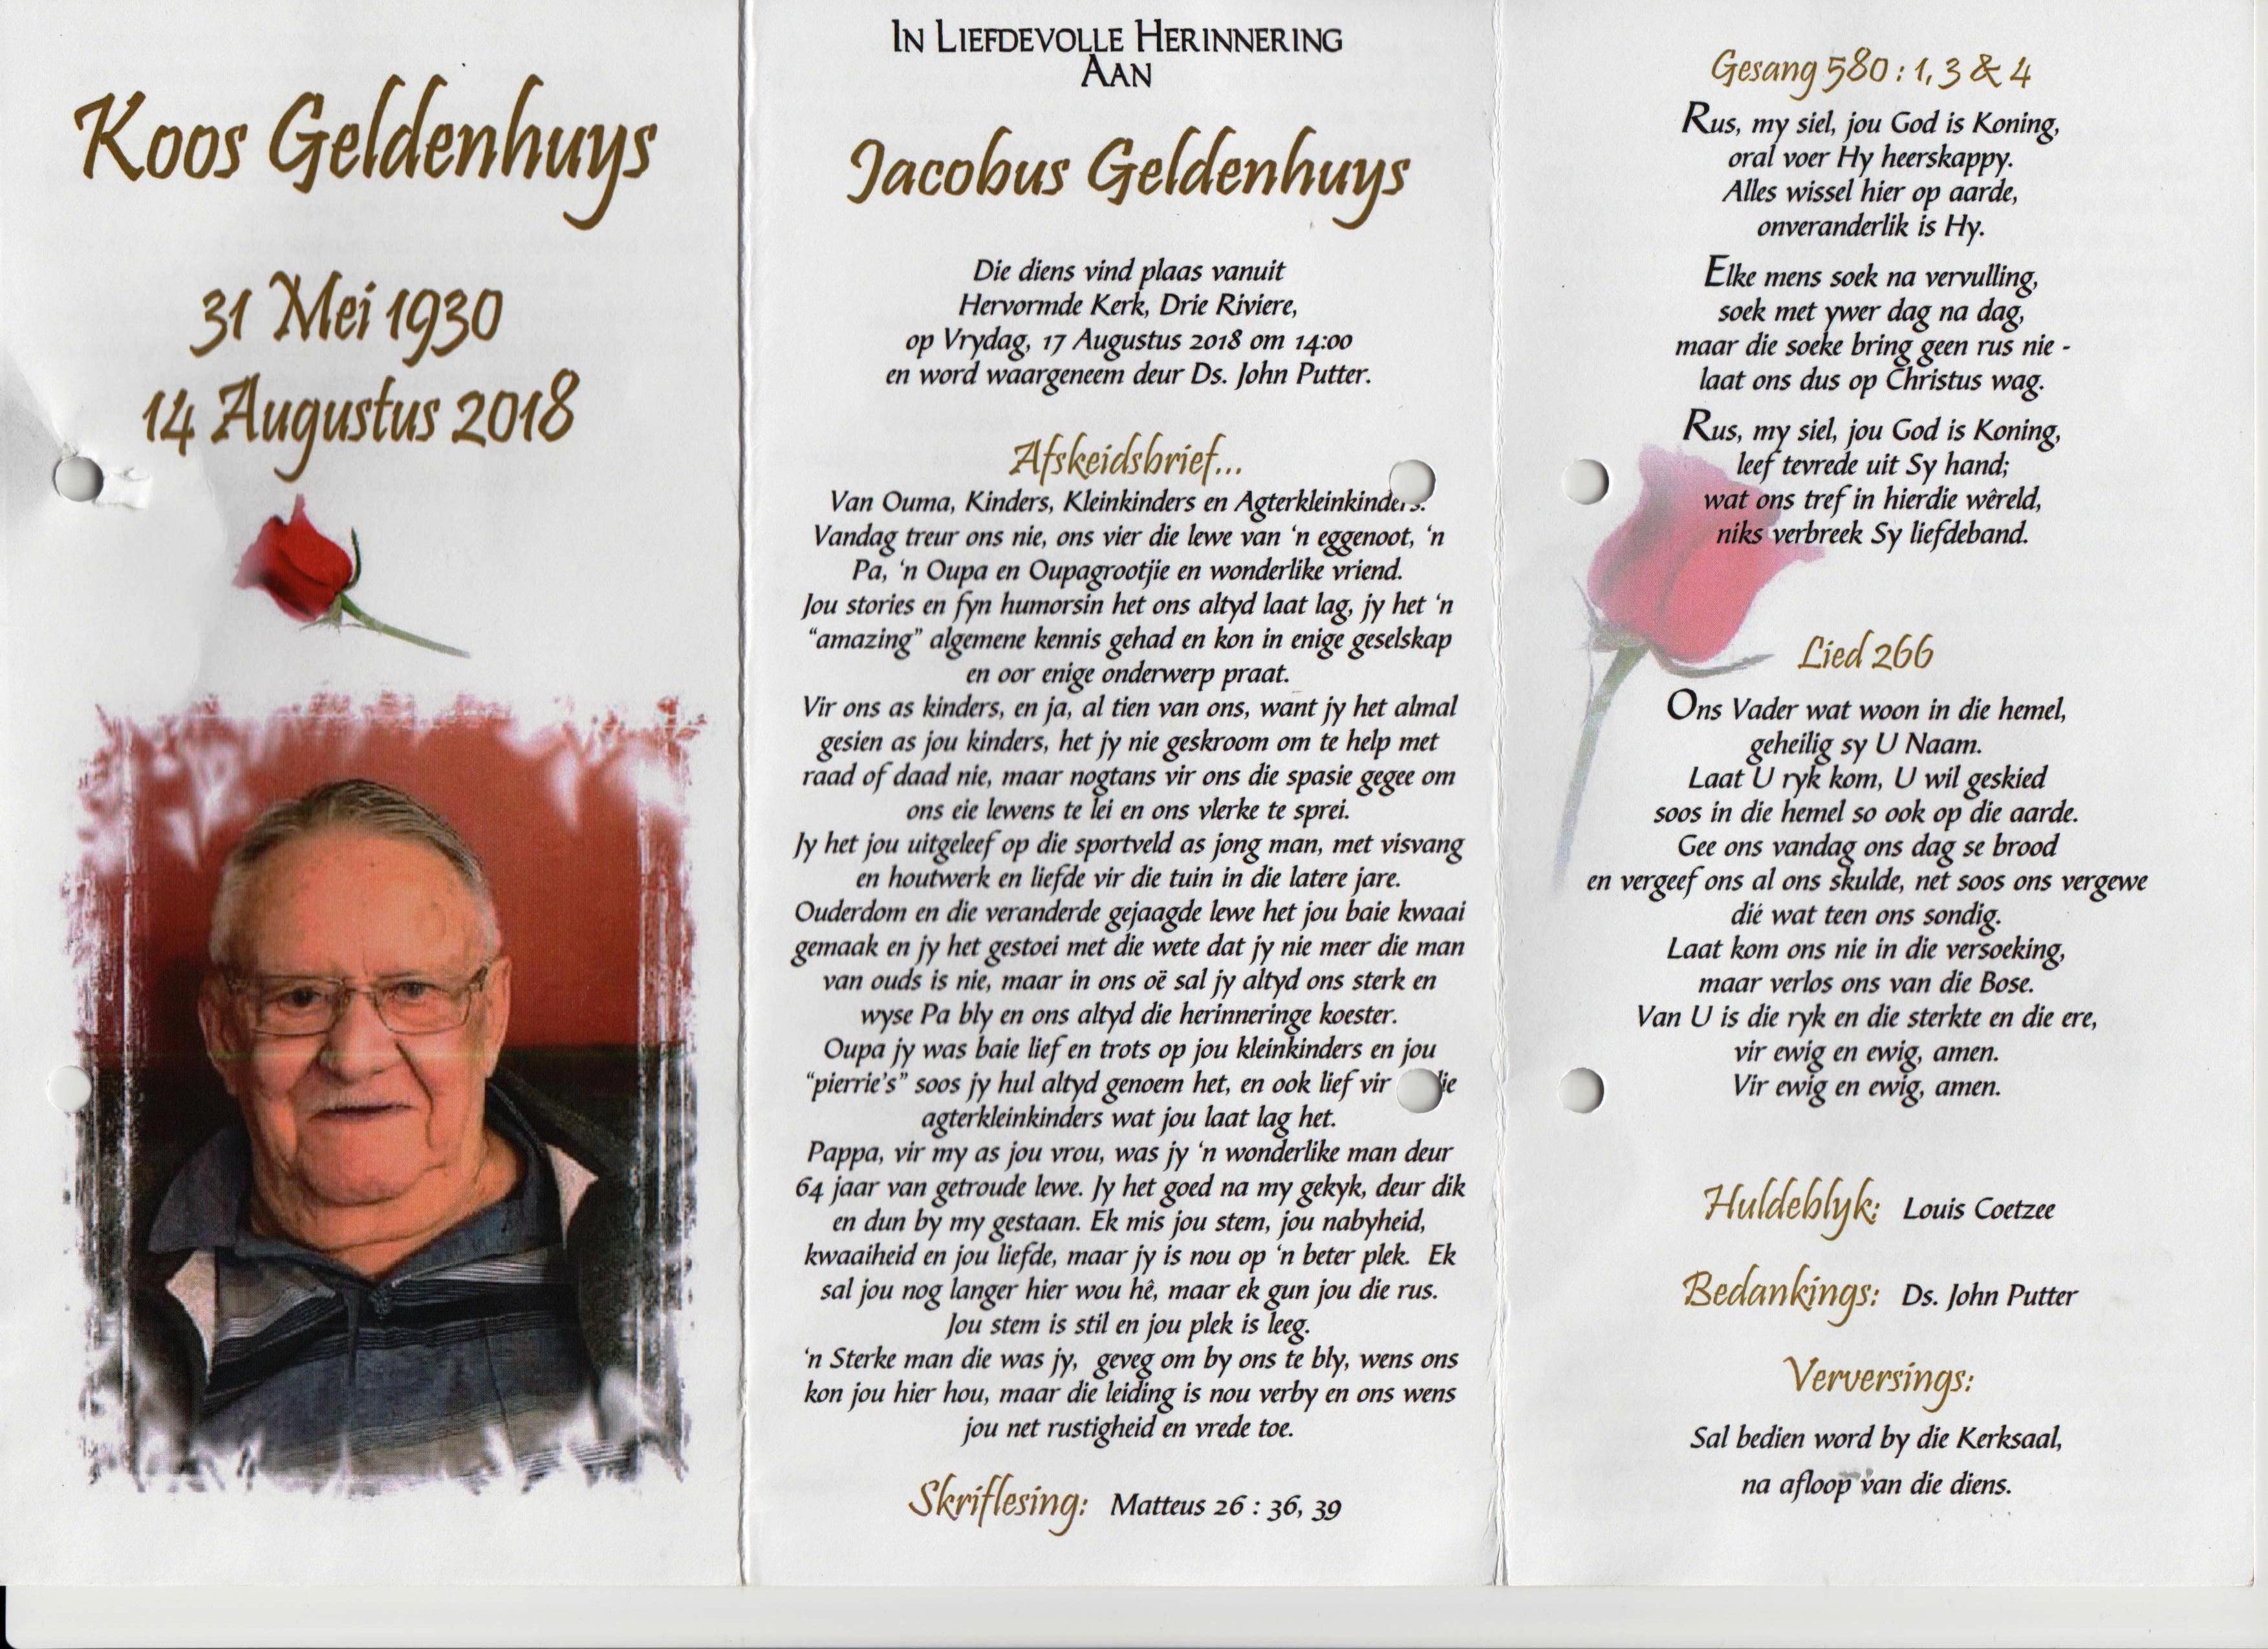 Koos Geldenhuys
31 Mei 1930
14 Augustus 2018
IN LIEFDEVOLLE HERINNERING
AAN
Jacobus Geldenhuys
Die diens vind plaas vanuit
Hervormde Kerk, Drie Riviere,
op Vrydag, 17 Augustus 2018 om 14:00
en word waargeneem deur Ds. John Putter.
Afskeidsbrief...
Van Ouma, Kinders, Kleinkinders en Agterkleinkinders.
Vandag treur ons nie, ons vier die lewe van 'n eggenoot, 'n
Pa, 'n Oupa en Oupagrootjie en wonderlike vriend.
Jou stories en fyn humorsin het ons altyd laat lag, jy het 'n
"amazing" algemene kennis gehad en kon in enige geselskap
en oor enige onderwerp praat.
Vir ons as kinders, en ja, al tien van ons, want jy het almal
gesien as jou kinders, het jy nie geskroom om te help met
raad of daad nie, maar nogtans vir ons die spasie gegee om
ons eie lewens te lei en ons vlerke te sprei.
Jy het jou uitgeleef op die sportveld as jong man, met visvang
en houtwerk en liefde vir die tuin in die latere jare.
Ouderdom en die veranderde gejaagde lewe het jou baie kwaai
gemaak en jy het gestoei met die wete dat jy nie meer die man
van ouds is nie, maar in ons oë sal jy altyd ons sterk en
wyse Pa bly en ons altyd die herinneringe koester.
Oupa jy was baie lief en trots op jou kleinkinders en jou
"pierrie's" soos jy hul altyd genoem het, en ook lief vir
agterkleinkinders wat jou laat lag het.
Pappa, vir my as jou vrou, was jy 'n wonderlike man deur
64 jaar van getroude lewe. Jy het goed na my gekyk, deur dik
en dun by my gestaan. Ek mis jou stem, jou nabyheid,
kwaaiheid en jou liefde, maar jy is nou op 'n beter plek. Ek
sal jou nog langer hier wou hê, maar ek gun jou die rus.
Jou stem is stil en jou plek is leeg.
'n Sterke man die was jy, geveg om by ons te bly, wens ons
kon jou hier hou, maar die leiding is nou verby en ons wens
jou net rustigheid en vrede toe.
Skriflesing: Matteus 26 : 36, 39
Gesang 580 : 1, 3 & 4
Rus, my siel, jou God is Koning,
oral voer Hy heerskappy.
Alles wissel hier op aarde,
onveranderlik is Hy.
Elke mens soek na vervulling,
soek met ywer dag na dag,
maar die soeke bring geen rus nie -
laat ons dus op Christus wag.
Rus, my siel, jou God is Koning,
leef tevrede uit Sy hand;
wat ons tref in hierdie wêreld,
niks verbreek Sy liefdeband.
Lied 266
Ons Vader wat woon in die hemel,
geheilig sy U Naam.
Laat U ryk kom, U wil geskied
soos in die hemel so ook op die aarde.
Gee ons vandag ons dag se brood
en vergeef ons al ons skulde, net soos ons vergewe
dié wat teen ons sondig.
Laat kom ons nie in die versoeking,
maar verlos ons van die Bose.
Van U is die ryk en die sterkte en die ere,
vir ewig en ewig, amen.
Vir ewig en ewig, amen.
Huldeblyk: Louis Coetzee
Bedankings: Ds. John Putter
Verversings:
Sal bedien word by die Kerksaal,
na afloop van die diens.